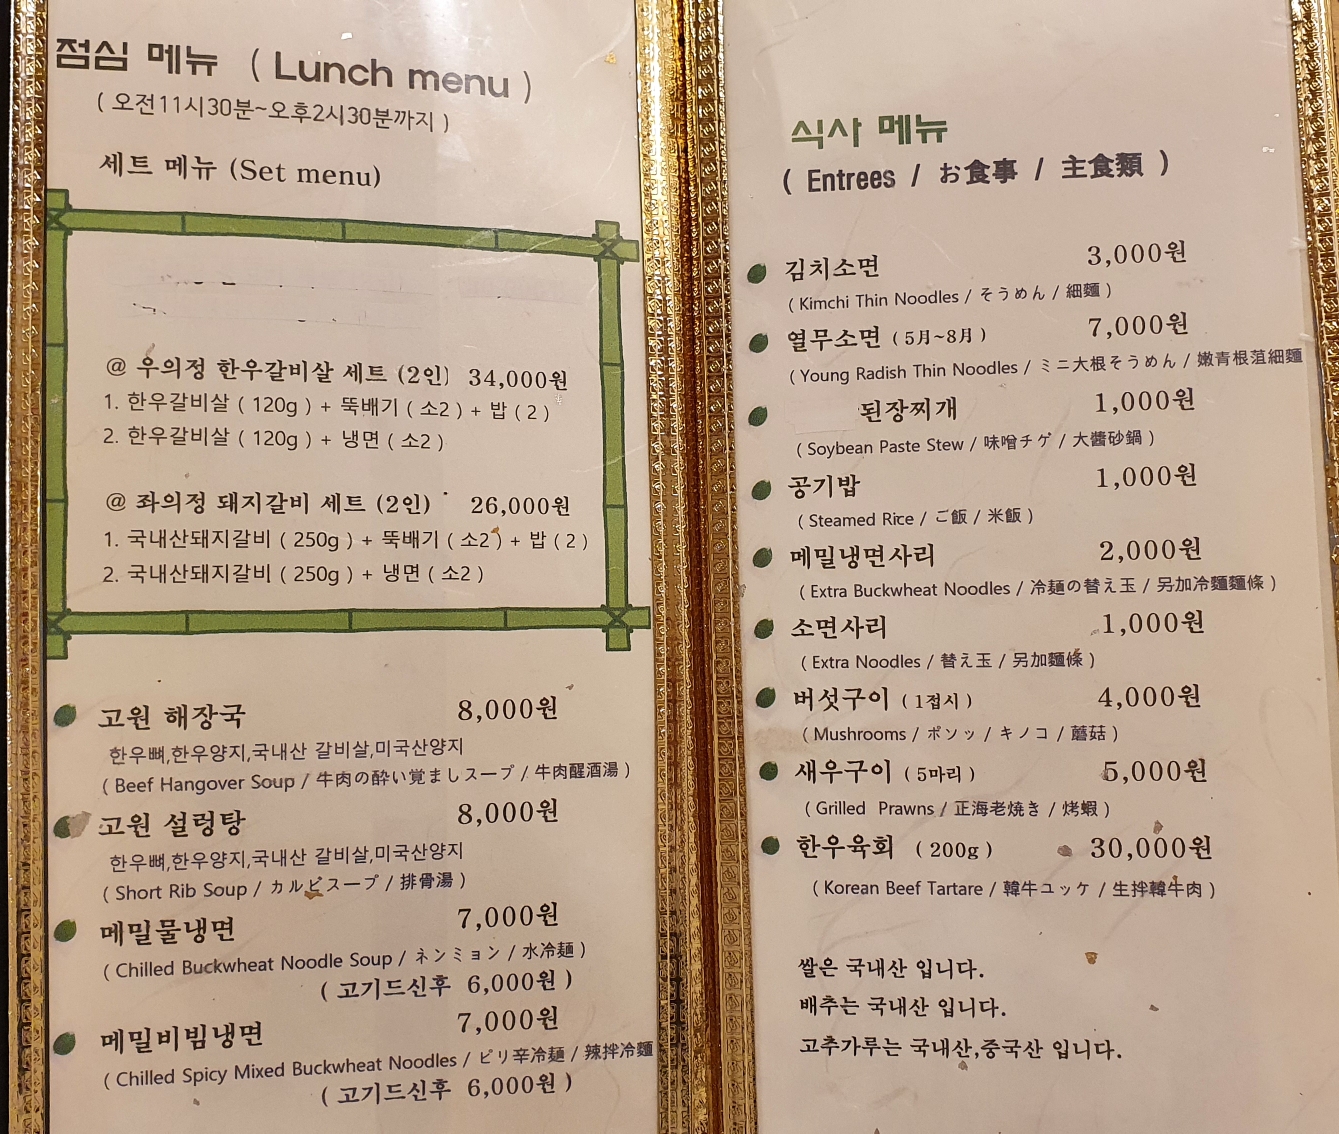 점심 메뉴 ( Lunch menu )
( 오전11시30분~오후2시30분까지 )
세트 메뉴 (Set menu)
@ 우의정 한우갈비살 세트 (2인) 34,000원
1. 한우갈비살 ( 120g ) + 뚝배기 ( 소2 ) + 밥 ( 2 )
2. 한우갈비살 ( 120g ) + 냉면 ( 소2 )
@ 좌의정 돼지갈비 세트 (2인) 26,000원
1. 국내산돼지갈비 ( 250g ) + 뚝배기 ( 소2 ) + 밥 ( 2 )
2. 국내산돼지갈비 ( 250g ) + 냉면 ( 소2 )
고원 해장국 8,000원
한우뼈,한우양지,국내산 갈비살,미국산양지
( Beef Hangover Soup / 牛肉の酔い覚ましスープ / 牛肉醒酒湯 )
고원 설렁탕 8,000원
한우뼈,한우양지,국내산 갈비살,미국산양지
( Short Rib Soup / カルビスープ / 排骨湯 )
메밀물냉면 7,000원
( Chilled Buckwheat Noodle Soup / ネンミョン / 水冷麺 )
( 고기드신후 6,000원 )
메밀비빔냉면 7,000원
( Chilled Spicy Mixed Buckwheat Noodles / ピリ辛冷麺 / 辣拌冷麵
( 고기드신후 6,000원 )
식사 메뉴
( Entrees / お食事 / 主食類 )
김치소면 3,000원
( Kimchi Thin Noodles / そうめん / 細麵 )
열무소면 ( 5月~8月 ) 7,000원
( Young Radish Thin Noodles / ミニ大根そうめん / 嫩青根菹細麵
된장찌개 1,000원
( Soybean Paste Stew / 味噌チゲ / 大醬砂鍋 )
공기밥 1,000원
( Steamed Rice / ご飯 / 米飯 )
메밀냉면사리 2,000원
( Extra Buckwheat Noodles / 冷麺の替え玉 / 另加冷麵麵條 )
소면사리 1,000원
( Extra Noodles / 替え玉 / 另加麵條 )
버섯구이 ( 1접시 ) 4,000원
( Mushrooms / ポソッ / キノコ / 蘑菇 )
새우구이 ( 5마리 ) 5,000원
( Grilled Prawns / 正海老焼き / 烤蝦 )
한우육회 ( 200g ) 30,000원
( Korean Beef Tartare / 韓牛ユッケ / 生拌韓牛肉 )
쌀은 국내산 입니다.
배추는 국내산 입니다.
고추가루는 국내산,중국산 입니다.